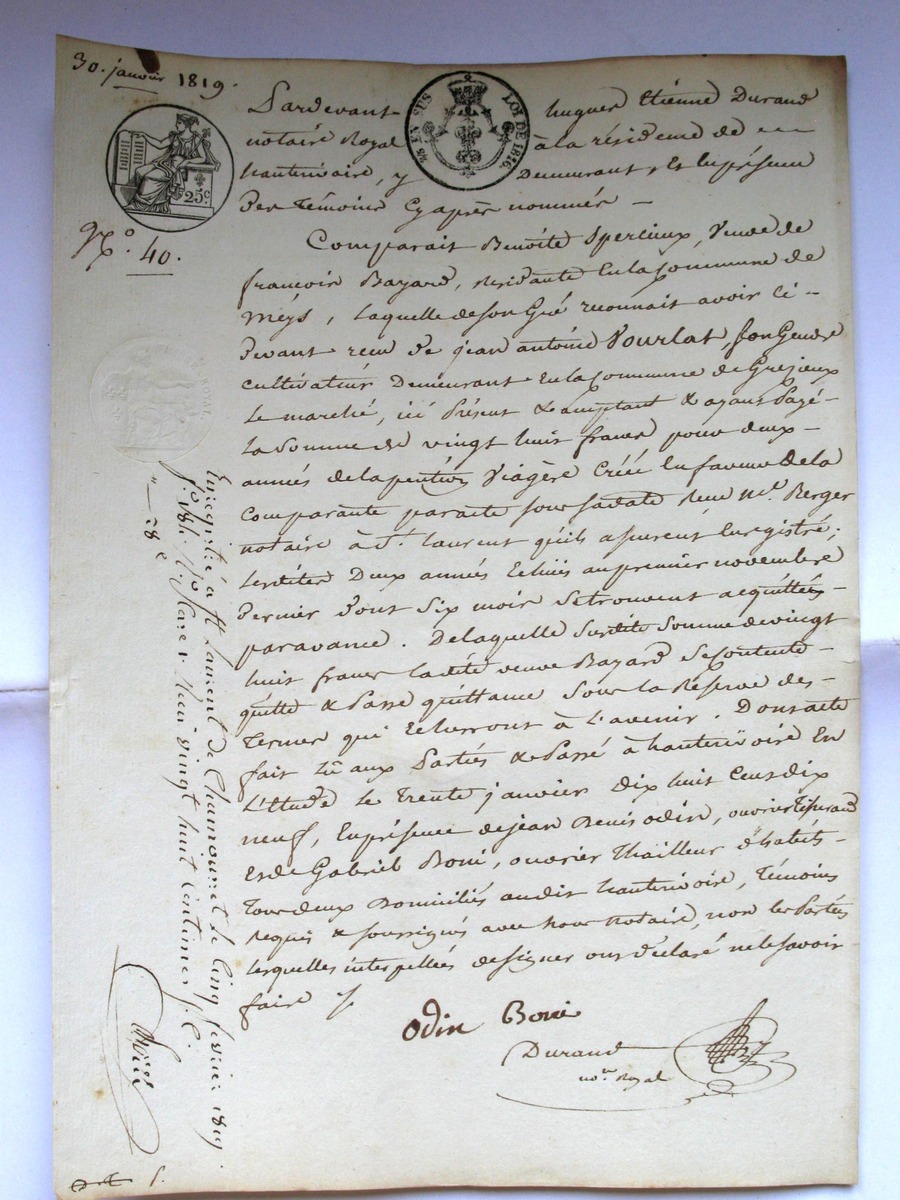 30. janvier 1819.
Pardevant hugues Etienne Durand
notaire Royal à la résidence de
hauterivoire, y Demeurant, & En présence
Des Témoins Cyaprès nommés —
25c
EN SUS
LOI DE 1816.
N.o 40.
Comparait Benoite Spercieux, Veuve de
françois Bayard, résidante En la Commune de
Méys, laquelle de son Gré reconnait avoir ci-
Devant reçu De jean antoine Vourlat, son Gendre
cultivateur Demeurant En la Commune de Grezieux
Le marché, ici Présent & acceptant & ayant Payé -
La Somme de vingt huit francs pour deux -
années de la pention Viagère Créée En faveur de la
Comparante par acte sous sa date Reçu Me. Berger
notaire à St. laurent qu'ils assurent Enregistré;
lesdites Deux années Echues au premier novembre
Dernier Dont Six mois se trouvent acquittés
par avance. De laquelle Susdite Somme de vingt
huit francs ladite veuve Bayard Se Contente -
quitte & Passe quittance Sous la Réserve des -
Termes qui Echerront à l'avenir. Dont acte
fait lû aux Parties & Passé à hauterivoire En
L'Etude le Trente janvier Dix huit Cent dix
neuf, En présence de jean Denis odin, ouvrier Tisserand
Et de Gabriel Boni, ouvrier Thailleur d'habits -
Tous deux Domiciliés audit hauterivoire, Témoins
Requis & soussignés avec nous notaire, non les Parties
lesquelles interpellées de signer ont Déclaré ne le savoir
faire
odin Boni
Durand
no.re Royal
Enregistré à St Laurent de Chamousset le cinq février 1819.
f.o 181 Reçu vingt huit centimes
" — 28 c